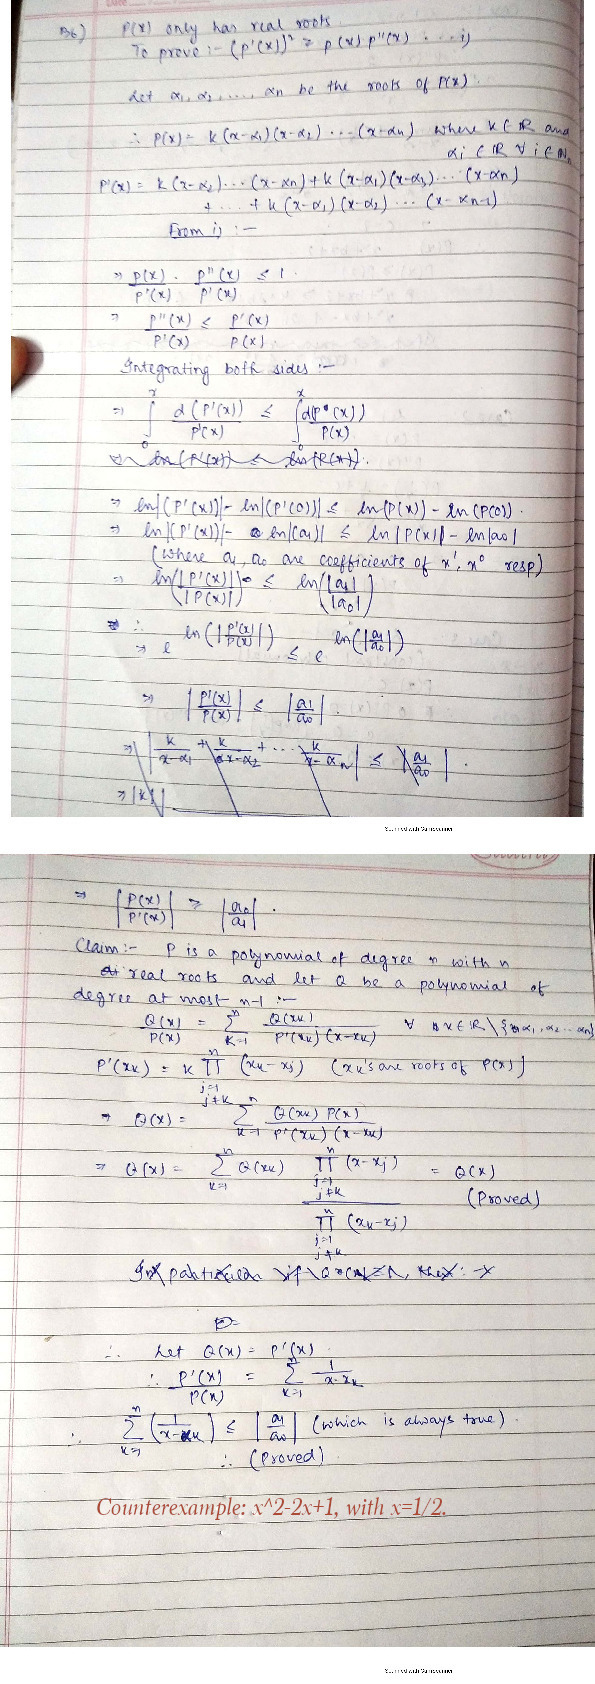 B6) P(x) only has real roots.
To prove :- (p'(x))² ≥ p(x) p''(x) .... i)
Let α₁, α₂, ...., αn be the roots of P(x).
∴ P(x) = k (x-α₁)(x-α₂) ... (x-αn) where k ∈ ℝ and
αi ∈ ℝ ∀ i ∈ ℕn
P'(x) = k (x-α₂)...(x-αn) + k (x-α₁)(x-α₃)... (x-αn)
+ ... + k (x-α₁)(x-α₂) ... (x-αn-1)
From i) :-
⇒ p(x)/p'(x) . p''(x)/p'(x) ≤ 1.
⇒ p''(x)/p'(x) ≤ p'(x)/p(x)
Integrating both sides :-
⇒ ∫₀ˣ d(P'(x))/P'(x) ≤ ∫₀ˣ d(P(x))/P(x)
⇒ ln(P'(x)) ≤ ln(P(x)).
⇒ ln|(P'(x))| - ln|(P'(0))| ≤ ln(P(x)) - ln(P(0)).
⇒ ln|(P'(x))| - ln|(a₁)| ≤ ln|P(x)| - ln|a₀|
(where a₁, a₀ are coefficients of x¹, x⁰ resp)
⇒ ln(|P'(x)|/|P(x)|) ≤ ln(|a₁|/|a₀|)
∴ ⇒ e^ln(|P'(x)/P(x)|) ≤ e^ln(|a₁/a₀|)
⇒ |P'(x)/P(x)| ≤ |a₁/a₀|.
⇒ |k/x-α₁ + k/x-α₂ + ... k/x-αn| ≤ |a₁/a₀|.
⇒ |k|
Scanned with CamScanner
⇒ |P(x)/P'(x)| ≥ |a₀/a₁|.
Claim:- P is a polynomial of degree n with n
real roots and let Q be a polynomial of
degree at most n-1 :-
Q(x)/P(x) = Σ_{k=1}^{n} Q(xk)/P'(xk)(x-xk) ∀ x ∈ ℝ \ {α₁, α₂ ... αn}
P'(xk) = k ∏_{j=1, j≠k}^{n} (xk-xj) (xk's are roots of P(x))
⇒ Q(x) = Σ_{k=1}^{n} Q(xk) P(x)/P'(xk)(x-xk)
⇒ Q(x) = Σ_{k=1}^{n} Q(xk) ∏_{j=1, j≠k}^{n} (x-xj) / ∏_{j=1, j≠k}^{n} (xk-xj) = Q(x)
(Proved)
In particular if
∴ Let Q(x) = P'(x).
∴ P'(x)/P(x) = Σ_{k=1}^{n} 1/x-xk
∴ Σ_{k=1}^{n} (1/x-xk) ≤ |a₁/a₀| (which is always true).
∴ (Proved)
Counterexample: x^2-2x+1, with x=1/2.
Scanned with CamScanner